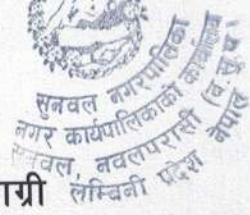 सुनवल नगरपालिका
नगर कार्यपालिकाको कार्यालय
सुनवल, नवलपरासी (ब.सु.प.)
लुम्बिनी प्रदेश नेपाल
ाग्री